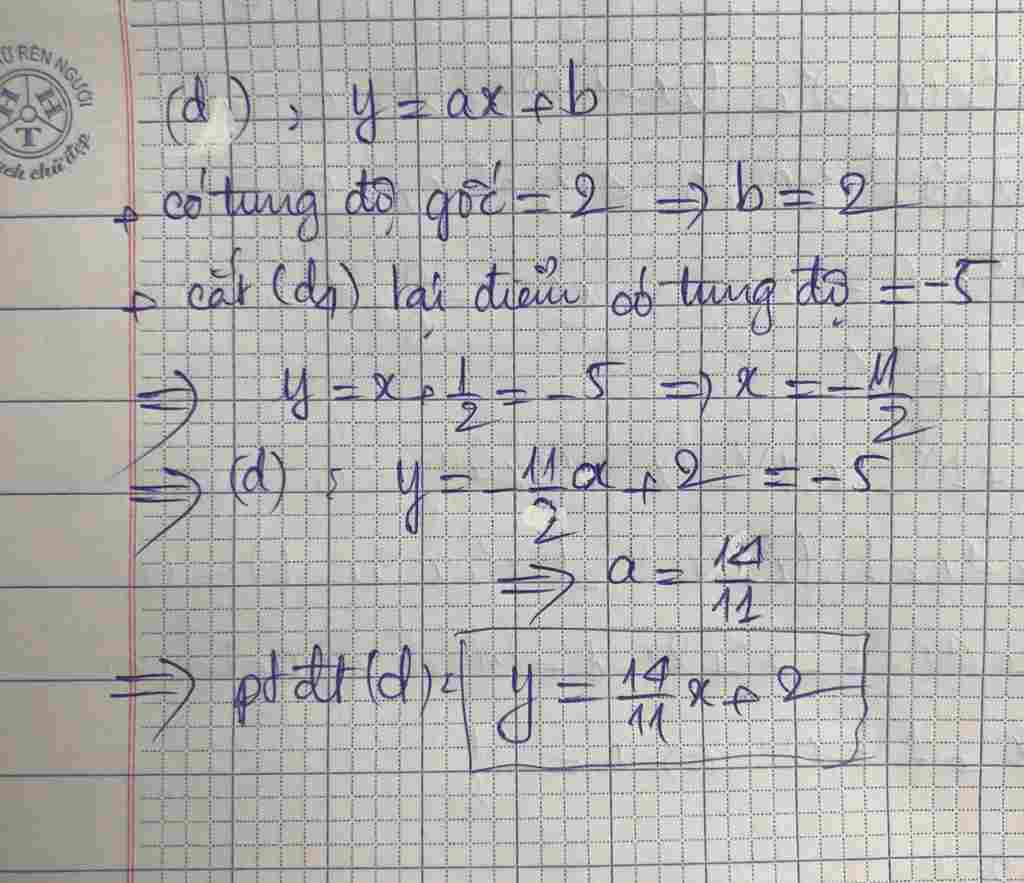 RÈN NGƯỜI
H H T
chữ đẹp
(d) : y = ax + b
+ có tung độ gốc = 2 => b = 2
+ cắt (d1) tại điểm có tung độ = -5
=> y = x + 1/2 = -5 => x = -11/2
=> (d) : y = -11/2 a + 2 = -5
=> a = 14/11
=> pt đt (d) : y = 14/11 x + 2